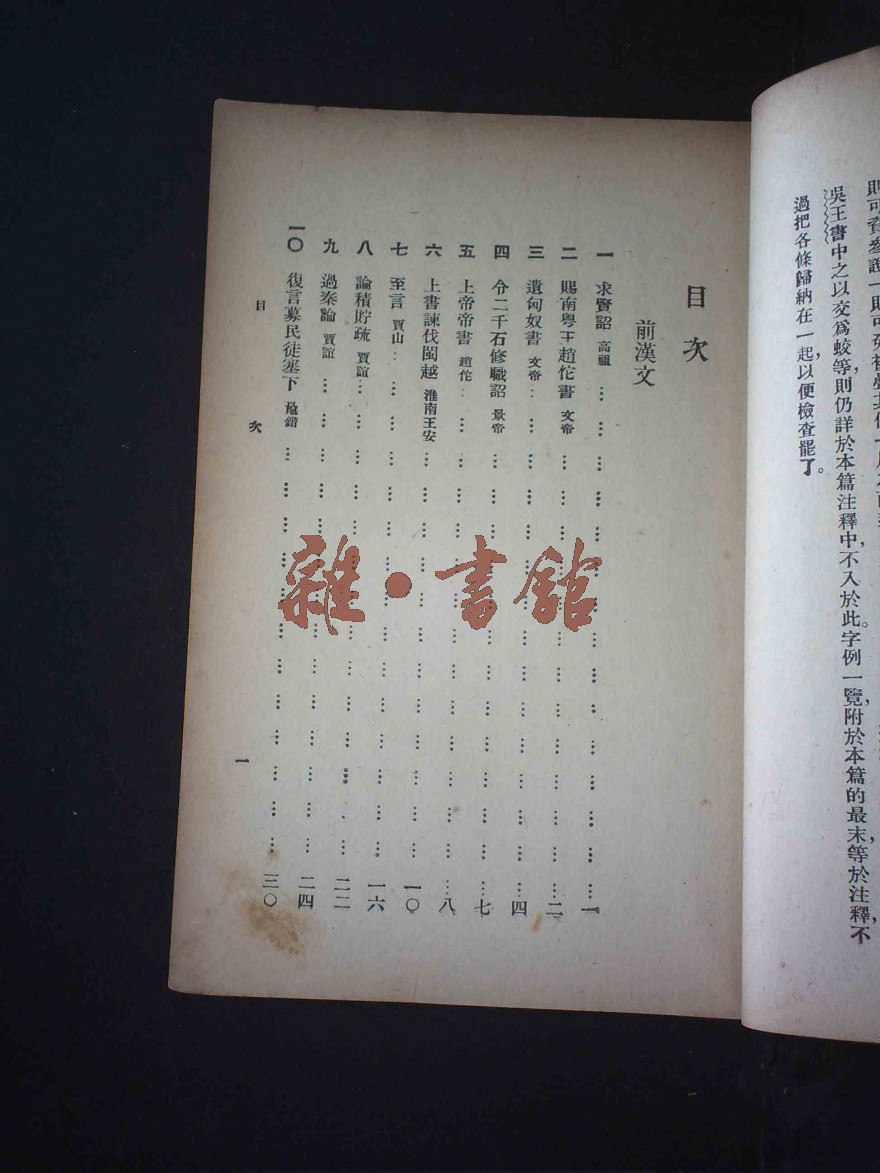 吳王書中之以交爲蛟等,則仍詳於本篇注釋中,不入於此。字例一覽,附於本篇的最末,等於注釋,不
過把各條歸納在一起,以便檢查罷了。
目次
前漢文
一 求賢詔 高祖……一
二 賜南粵王趙佗書 文帝……二
三 遺匈奴書 文帝……四
四 令二千石修職詔 景帝……七
五 上帝帝書 趙佗……八
六 上書諫伐閩越 淮南王安……一〇
七 至言 賈山……一六
八 論積貯疏 賈誼……二二
九 過秦論 賈誼……二四
一〇 復言募民徒塞下 鼂錯……三〇
目 次
一
雜·書館